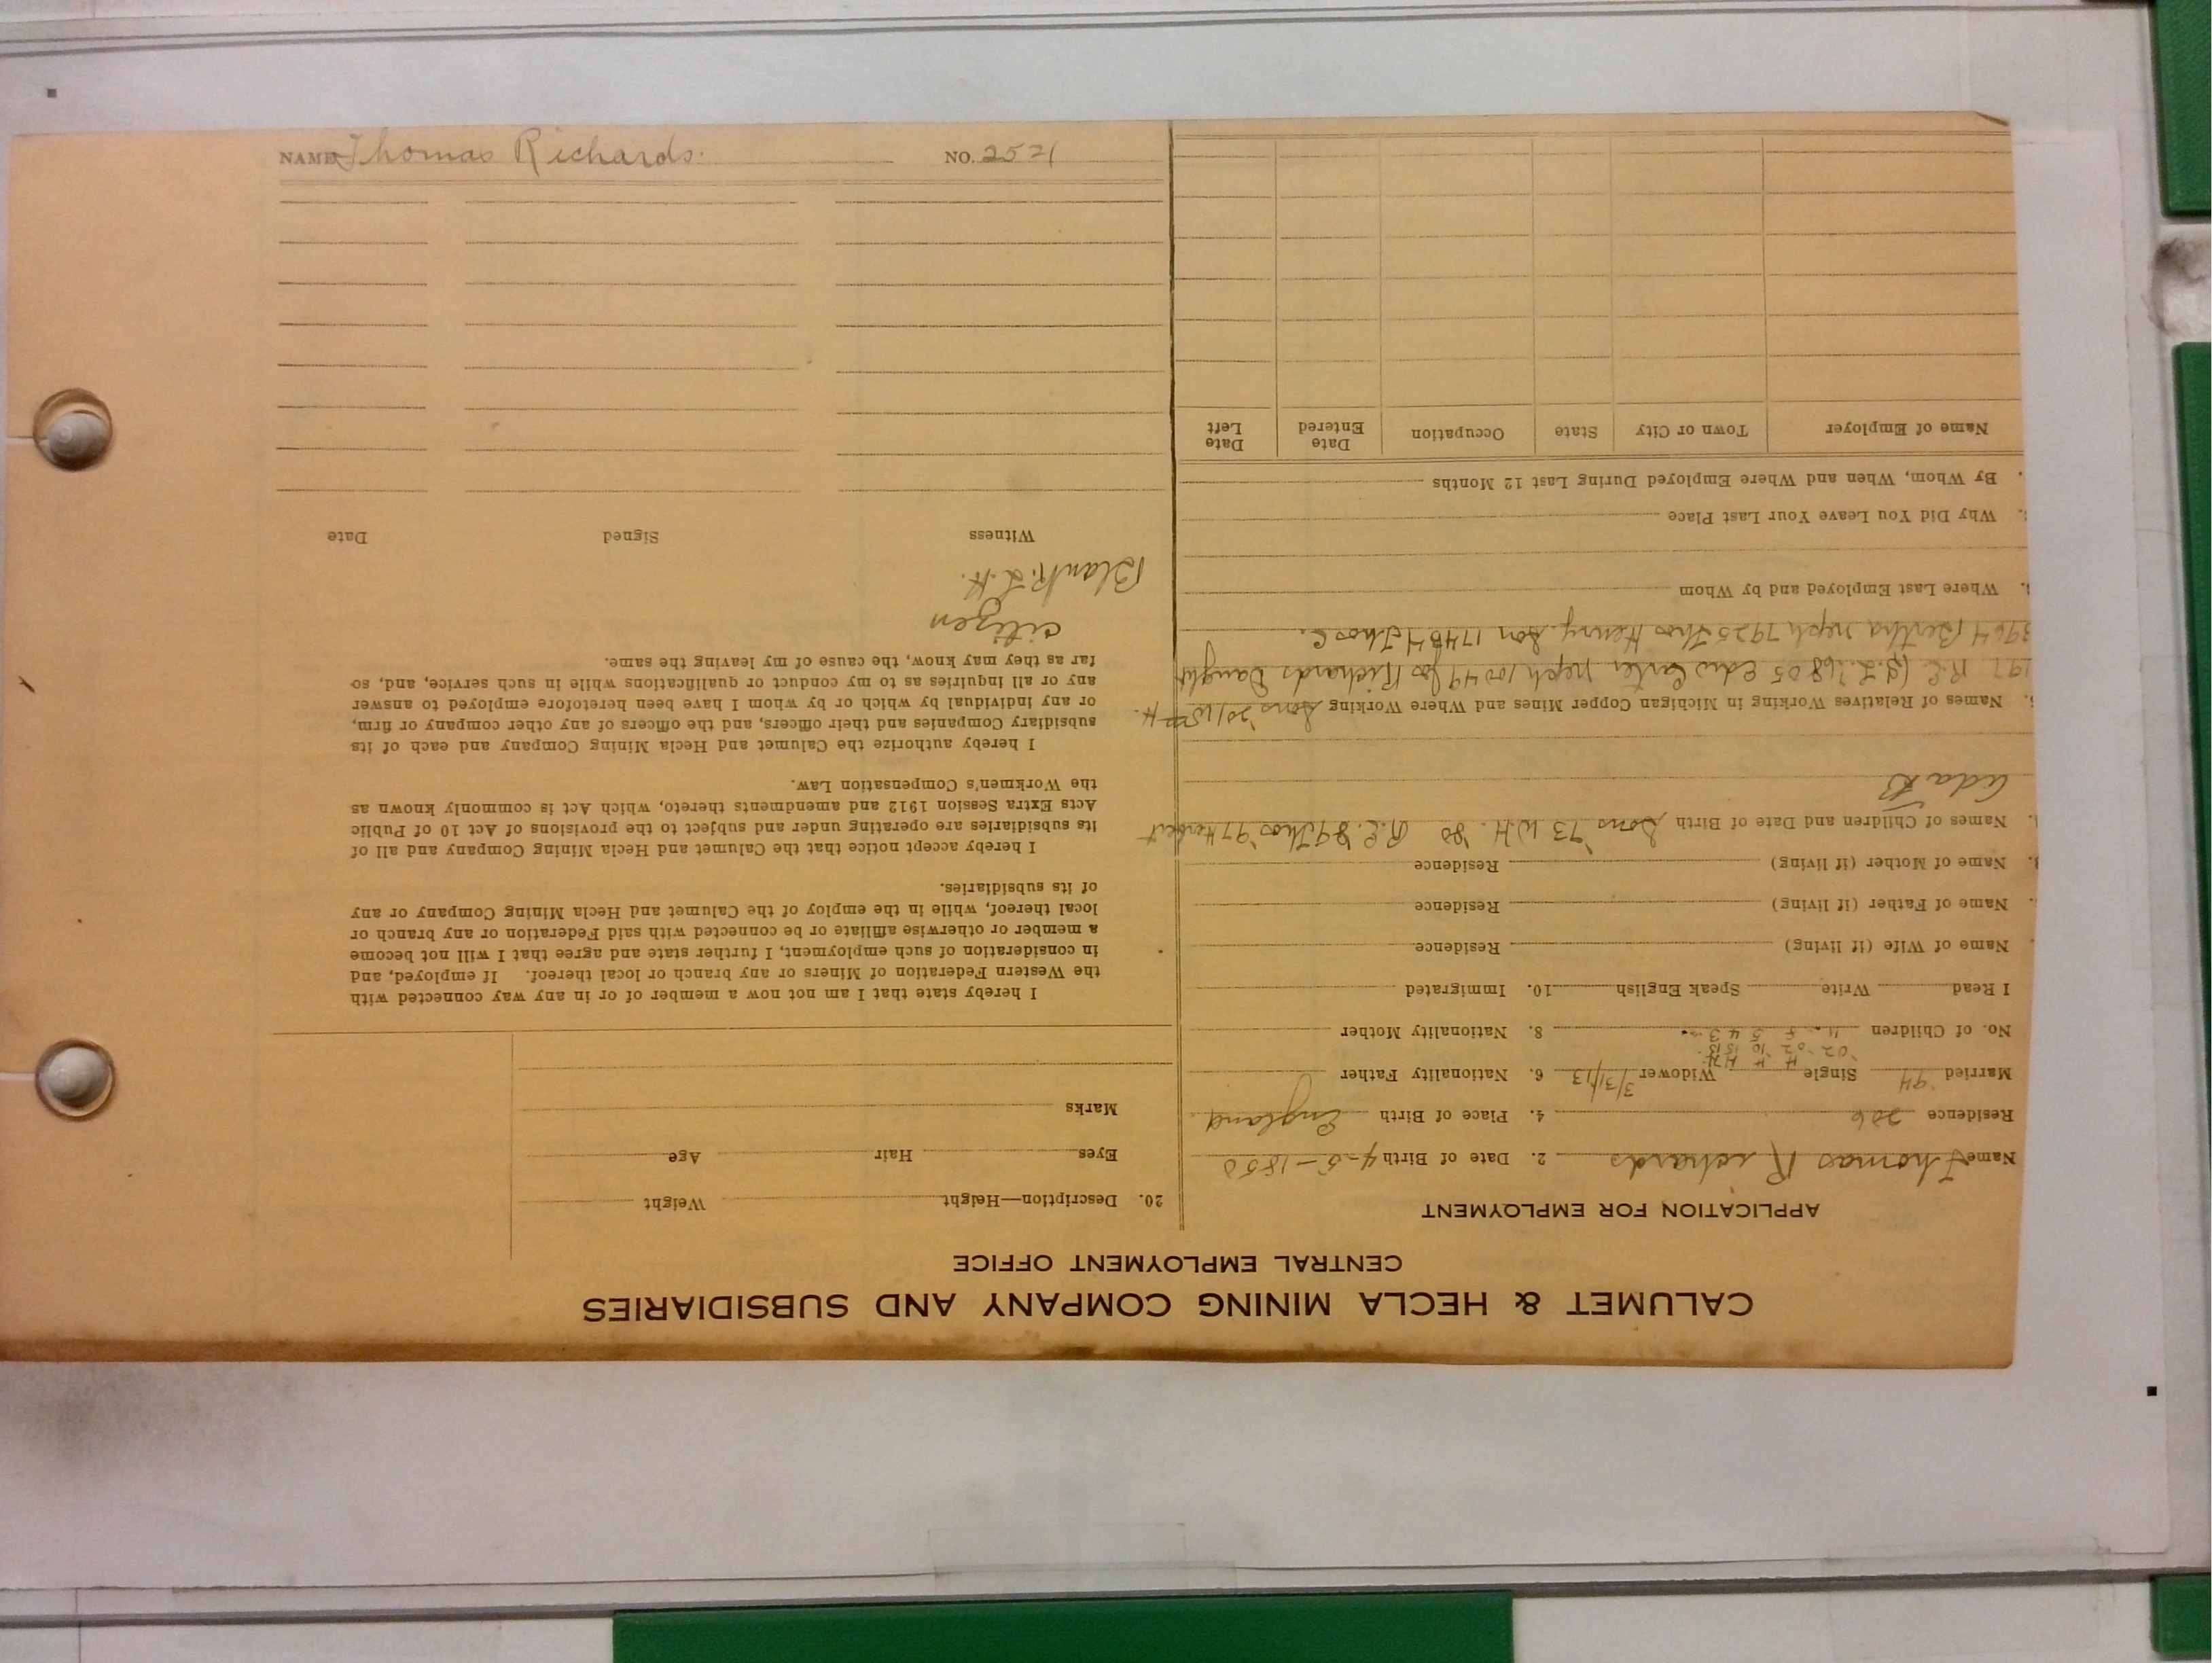 NAME Thomas Richards. NO. 2521
CALUMET & HECLA MINING COMPANY AND SUBSIDIARIES
CENTRAL EMPLOYMENT OFFICE
APPLICATION FOR EMPLOYMENT
Name Thomas Richards 2. Date of Birth 4-5-1850
Residence 206 4. Place of Birth England
Married '94 Single Widower 3/31/13 6. Nationality Father
No. of Children 8. Nationality Mother
I Read Write Speak English 10. Immigrated
Name of Wife (if living) Residence
Name of Father (if living) Residence
Name of Mother (if living) Residence
Names of Children and Date of Birth Sons '73 W.H. '80 R.E. '89 Thos '97 Herbert
Ada B
Names of Relatives Working in Michigan Copper Mines and Where Working Sons
R.E. 6805 Edw Carter neph 10049 Jas Richards Daught
3964 Bertha neph 7925 Thos Henry. Son 17484 Thos C.
Where Last Employed and by Whom
Why Did You Leave Your Last Place
By Whom, When and Where Employed During Last 12 Months
Name of Employer Town or City State Occupation Date Entered Date Left
20. Description—Height Weight
Eyes Hair Age
Marks
I hereby state that I am not now a member of or in any way connected with
the Western Federation of Miners or any branch or local thereof. If employed, and
in consideration of such employment, I further state and agree that I will not become
a member or otherwise affiliate or be connected with said Federation or any branch or
local thereof, while in the employ of the Calumet and Hecla Mining Company or any
of its subsidiaries.
I hereby accept notice that the Calumet and Hecla Mining Company and all of
its subsidiaries are operating under and subject to the provisions of Act 10 of Public
Acts Extra Session 1912 and amendments thereto, which Act is commonly known as
the Workmen's Compensation Law.
I hereby authorize the Calumet and Hecla Mining Company and each of its
subsidiary Companies and their officers, and the officers of any other company or firm,
or any individual by which or by whom I have been heretofore employed to answer
any or all inquiries as to my conduct or qualifications while in such service, and, so
far as they may know, the cause of my leaving the same.
citizen
Blank. L.H.
Witness Signed Date